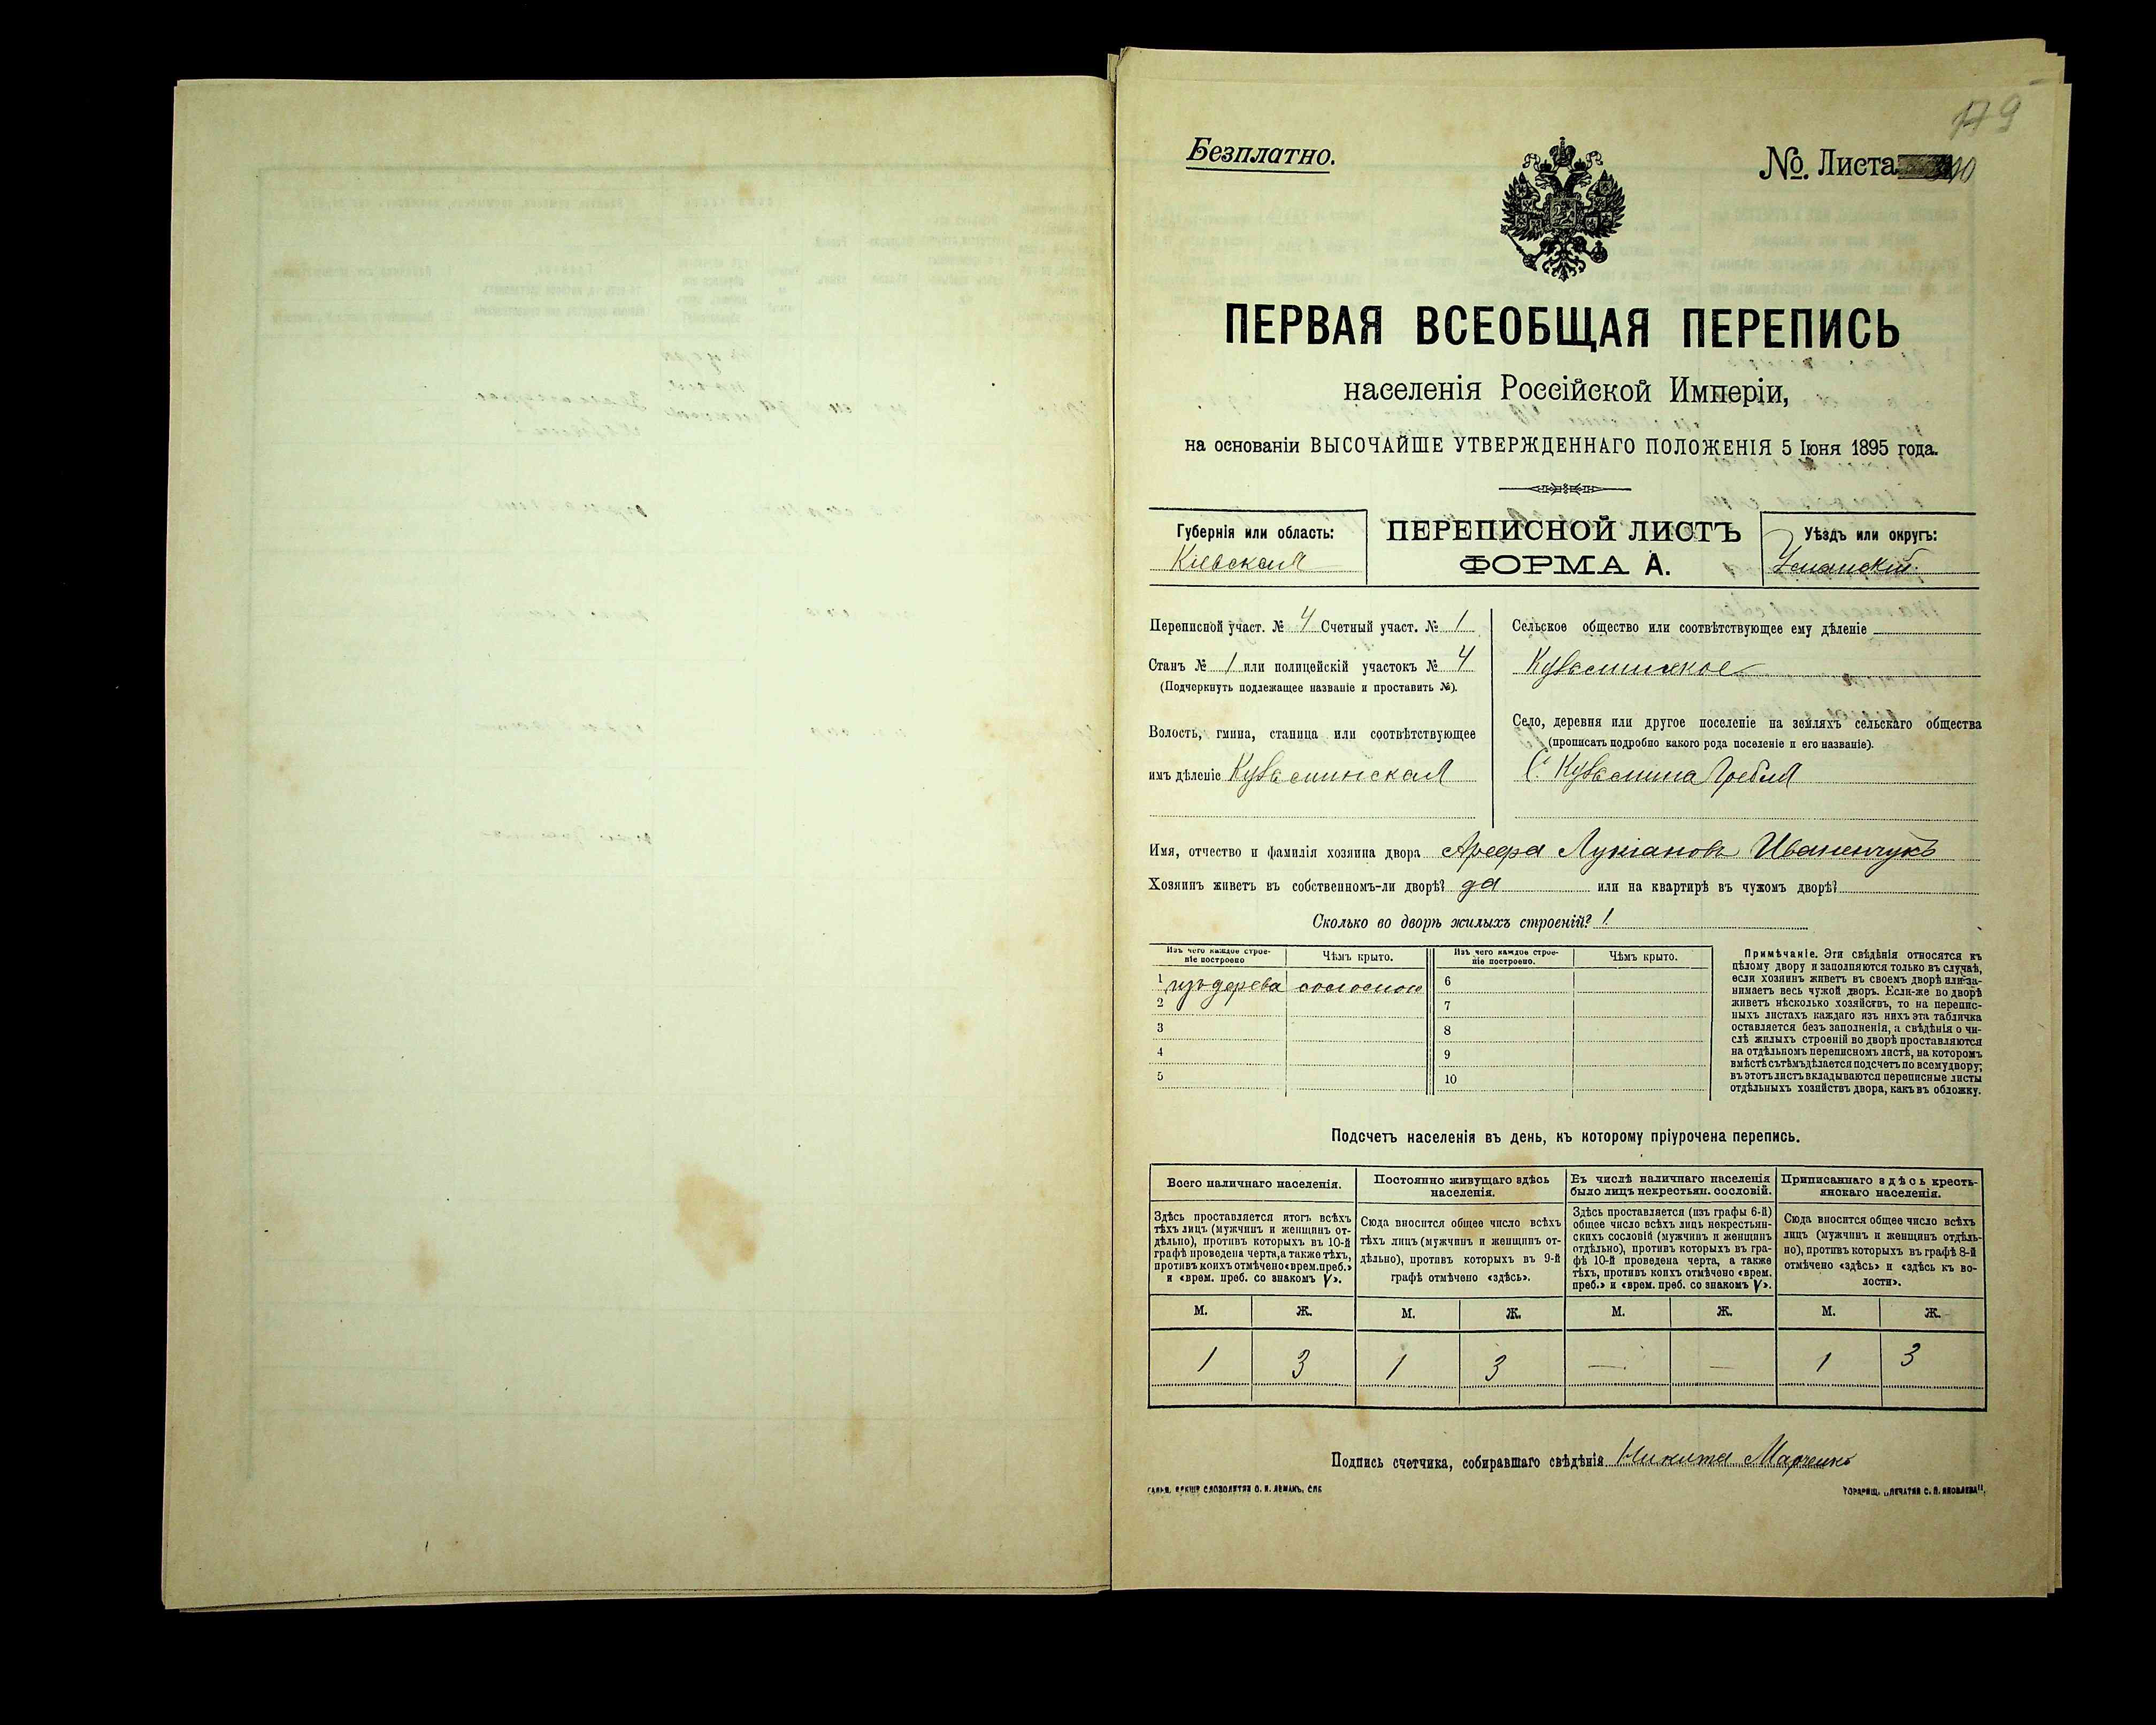 179
Безплатно.
№. Листа
ПЕРВАЯ ВСЕОБЩАЯ ПЕРЕПИСЬ
населенія Россійской Имперіи,
на основаніи ВЫСОЧАЙШЕ УТВЕРЖДЕННАГО ПОЛОЖЕНІЯ 5 Іюня 1895 года.
Губернія или область:
Кіевская
ПЕРЕПИСНОЙ ЛИСТЪ
ФОРМА А.
Уѣздъ или округъ:
Уманскій
Переписной участ. № 4 Счетный участ. № 1
Станъ № 1 или полицейскій участокъ № 4
(Подчеркнуть подлежащее названіе и проставить №).
Волость, гмина, станица или соотвѣтствующее
имъ дѣленіе Кузьминская
Сельское общество или соотвѣтствующее ему дѣленіе
Кузьминское
Село, деревня или другое поселеніе на земляхъ сельскаго общества
(прописать подробно какого рода поселеніе и его названіе).
С. Кузьмина Гребля
Имя, отчество и фамилія хозяина двора Арефа Лукіановъ Иваненчукъ
Хозяинъ живетъ въ собственномъ-ли дворѣ? да или на квартирѣ въ чужомъ дворѣ?
Сколько во дворѣ жилыхъ строеній? 1
Изъ чего каждое строе-
ніе построено
Чѣмъ крыто.
Изъ чего каждое строе-
ніе построено.
Чѣмъ крыто.
1 изъ дерева соломою 6
2 7
3 8
4 9
5 10
Примѣчаніе. Эти свѣдѣнія относятся къ
цѣлому двору и заполняются только въ случаѣ,
если хозяинъ живетъ въ своемъ дворѣ или за-
нимаетъ весь чужой дворъ. Если-же во дворѣ
живетъ нѣсколько хозяйствъ, то на перепис-
ныхъ листахъ каждаго изъ нихъ эта табличка
оставляется безъ заполненія, а свѣдѣнія о чи-
слѣ жилыхъ строеній во дворѣ проставляются
на отдѣльномъ переписномъ листѣ, на которомъ
вмѣстѣ съ тѣмъ дѣлается подсчетъ по всему двору;
въ этотъ листъ вкладываются переписные листы
отдѣльныхъ хозяйствъ двора, какъ въ обложку.
Подсчетъ населенія въ день, къ которому пріурочена перепись.
Всего наличнаго населенія.
Здѣсь проставляется итогъ всѣхъ
тѣхъ лицъ (мужчинъ и женщинъ от-
дѣльно), противъ которыхъ въ 10-й
графѣ проведена черта, а также тѣхъ,
противъ коихъ отмѣчено «врем. преб.»
и «врем. преб. со знакомъ V».
Постоянно живущаго здѣсь
населенія.
Сюда вносится общее число всѣхъ
тѣхъ лицъ (мужчинъ и женщинъ от-
дѣльно), противъ которыхъ въ 9-й
графѣ отмѣчено «здѣсь».
Въ числѣ наличнаго населенія
было лицъ некрестьян. сословій.
Здѣсь проставляется (изъ графы 6-й)
общее число всѣхъ лицъ некрестьян-
скихъ сословій (мужчинъ и женщинъ
отдѣльно), противъ которыхъ въ гра-
фѣ 10-й проведена черта, а также
тѣхъ, противъ коихъ отмѣчено «врем.
преб.» и «врем. преб. со знакомъ V».
Приписаннаго здѣсь кресть-
янскаго населенія.
Сюда вносится общее число всѣхъ
лицъ (мужчинъ и женщинъ отдѣль-
но), противъ которыхъ въ графѣ 8-й
отмѣчено «здѣсь» и «здѣсь къ во-
лости».
М. Ж. М. Ж. М. Ж. М. Ж.
1 3 1 3 — — 1 3
Подпись счетчика, собиравшаго свѣдѣнія Никита Марченко
СЛОВОЛИТНЯ О. И. ЛЕМАНЪ, СПБ
ТОВАРИЩ. „ПЕЧАТНЯ С. П. ЯКОВЛЕВА".